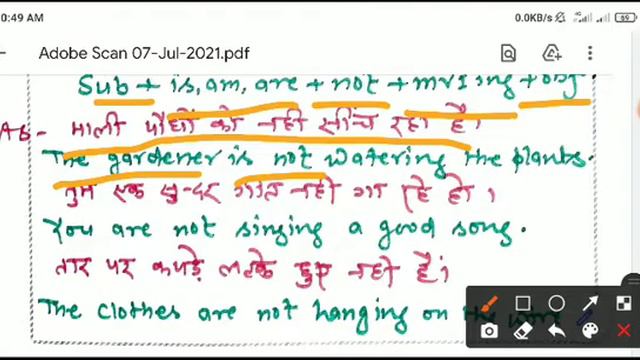 0:49 AM 0.0KB/s 69
Adobe Scan 07-Jul-2021.pdf
Sub + is, am, are + not + mv I ing + obj
As- माली पौधों को नहीं सींच रहा है।
The gardener is not watering the plants.
तुम एक सुन्दर गाना नहीं गा रहे हो।
You are not singing a good song.
तार पर कपड़े लटके हुए नहीं हैं।
The clothes are not hanging on the